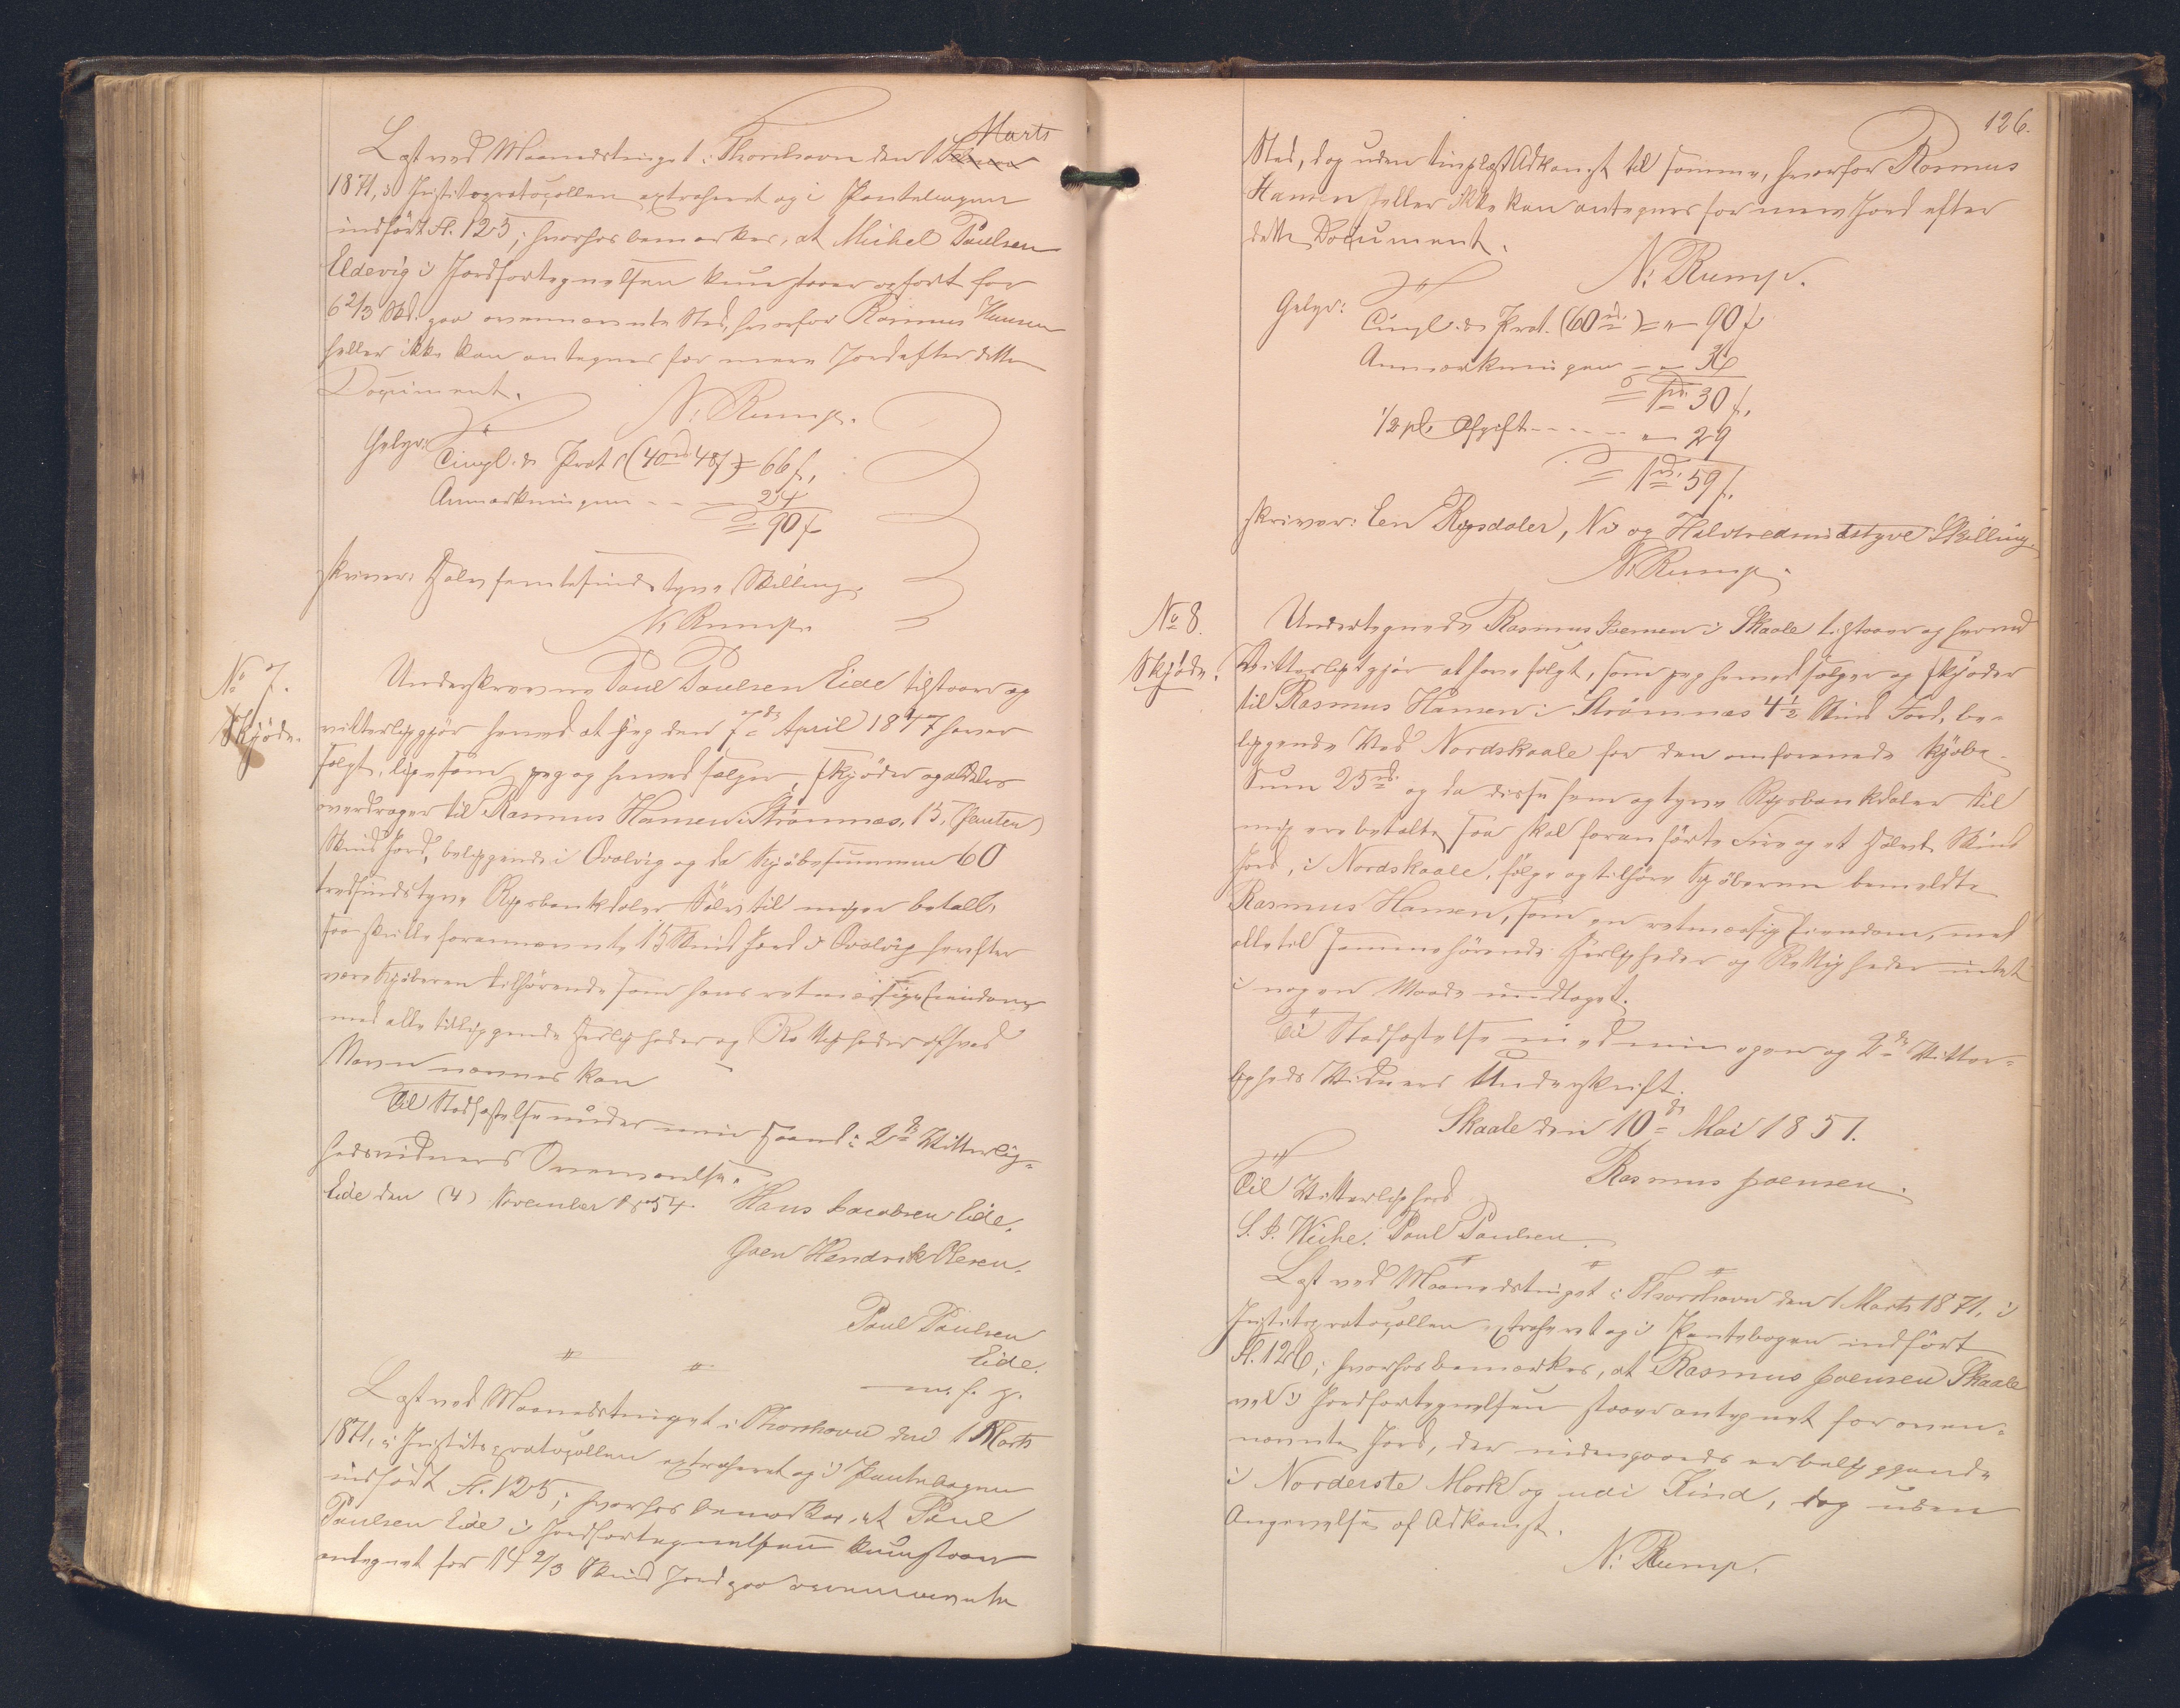 Marts
Læst ved Maanedstinget i Thorshavn den 1
1871, i Justitsprotocollen extraheret og i Pantebogen
indført Fl. 125; hvorhos bemærkes, at Michel Poulsen
Eldevig i Jordfortegnelsen kun staaer opført for
6 2/3 Skd. paa ovennævnte Sted, hvorfor Rasmus Hansen
heller ikke kan antegnes for mere Jord efter dette
Document.
N. Rump.
Gebyr:
Tingl. & Prot. (40 rd 48 f) = 66 f,
Anmærkningen - - - 24
= 90 f
skriver: Halvfemtesindstyve Skilling.
N. Rump.
No 7.
Skjøde.
Underskrevne Poul Poulsen Eide tilstaaer og
vitterliggjør herved at jeg den 7de April 1847 haver
solgt, ligesom jeg og herved sælger, skjøder og aldeles
overdrager til Rasmus Hansen i Strømnæs, 15, (fanten)
Skind Jord, beliggende i Qvalvig og da Kjøbesummen 60
tredsindstyve Rigsbankdaler Sølv til mig er betalt,
saa skulle forannævnte 15 Skind Jord i Qvalvig herefter
være Kjøberen tilhørende som hans retmæssige Eiendom
med alle tilliggende Herligheder og Rettigheder af hvad
Navn nævnes kan
Til Stadfæstelse under min Haand i 2de Vitterlig=
hedsvidners Overværelse.
Eide den (4) November 1854. Hans Jacobsen Eide.
Joen Hendrik Olesen.
Poul Poulsen
Eide.
m. f. p.
Læst ved Maanedstinget i Thorshavn den 1 Marts
1871, i Justitsprotocollen extraheret og i Pantebogen
indført Fl. 125; hvorhos bemærkes, at Poul
Poulsen Eide i Jordfortegnelsen kun staaer
antegnet for 14 2/3 Skind Jord paa ovennævnte
126.
Sted, dog uden tinglæst Adkomst til samme, hvorfor Rasmus
Hansen heller ikke kan antegnes for mere Jord efter
dette Document.
N. Rump.
Gebyr:
Tingl. & Prot. (60 rd) = " 90 f
Anmærkningen - " 36
= 1 rd 30 f.
1/2 pCt. Afgift - - - - - " 29
= 1 rd. 59 f.
skriver: Een Rigsdaler, Ni og Halvtredsindstyve Skilling.
N. Rump.
No 8.
Skjøde.
Undertegnede Rasmus Joensen i Skaale tilstaaer og herved
Vitterligtgjør at have solgt, som jeg herved sælger og skjøder
til Rasmus Hansen i Strømnæs 4 1/2 Skind Jord, be=
liggende Ved Nordskaale for den omforenede Kjøbe=
Sum 25 rd. og da disse fem og tyve Rigsbankdaler til
mig ere betalte saa skal foranførte Fire og et halvt Skind
Jord, i Nordskaale, følge og tilhøre Kjøberen bemeldte
Rasmus Hansen, som en retmæssig Eiendom, med
alle til sammehørende Herligheder og Rettigheder intet
i nogen Maade undtaget.
Til Stadfæstelse med min egen og 2de Vitter=
ligheds Vidners Underskrift.
Skaale den 10de Mai 1851.
Rasmus Joensen.
Til Vitterlighed
S. P. Weihe. Poul Poulsen.
Læst ved Maanedstinget i Thorshavn den 1 Marts 1871, i
Justitsprotocollen extraheret og i Pantebogen indført
Fl. 126; hvorhos bemærkes, at Rasmus Joensen Skaale
vel i Jordfortegnelsen staaer antegnet for oven=
nævnte Jord, der udengaards er beliggende
i Norderste Mork og udi Kind, dog uden
Angivelse af Adkomst.
N. Rump.